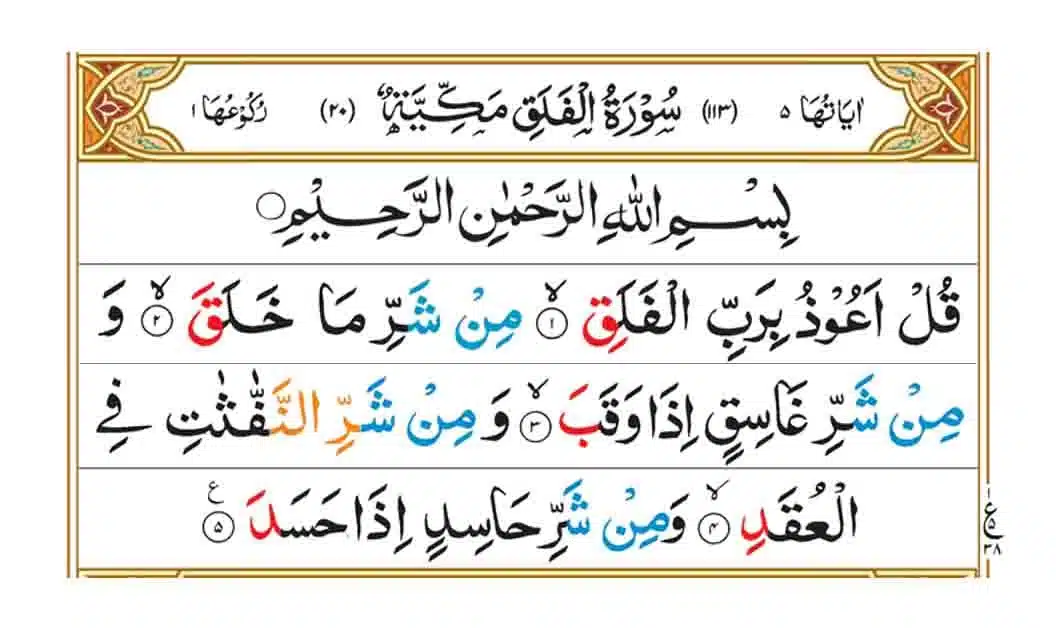 اٰيَاتُهَا ٥ (١١٣) سُوْرَةُ الْفَلَقِ مَكِّيَّةٌ (٢٠) رُكُوْعُهَا ١
بِسْمِ اللّٰهِ الرَّحْمٰنِ الرَّحِيْمِ
قُلْ اَعُوْذُ بِرَبِّ الْفَلَقِ ۙ‏﴿١﴾ مِنْ شَرِّ مَا خَلَقَ ۙ‏﴿٢﴾ وَ
مِنْ شَرِّ غَاسِقٍ اِذَا وَقَبَ ۙ‏﴿٣﴾ وَ مِنْ شَرِّ النَّفّٰثٰتِ فِي
الْعُقَدِ ۙ‏﴿٤﴾ وَمِنْ شَرِّ حَاسِدٍ اِذَا حَسَدَ ﴿٥﴾ ع
١
ع ٥
٣٨